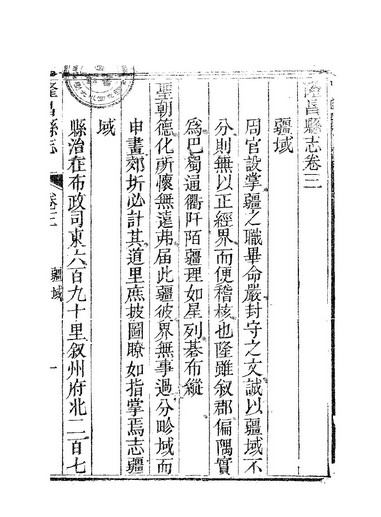 隆昌縣志卷三
疆域
周官設掌疆之職畢命嚴封守之文誠以疆域不
分則無以正經界而便稽核也隆雖叙郡偏隅實
爲巴蜀通衢阡陌疆理如星列碁布縱
聖朝德化所懷無遠弗届此疆彼界無事過分畛域而
申畫郊圻必計其道里庶披圖瞭如指掌焉志疆
域
縣治在布政司東六百九十里叙州府北二百七
隆昌縣志
卷三
疆域
一